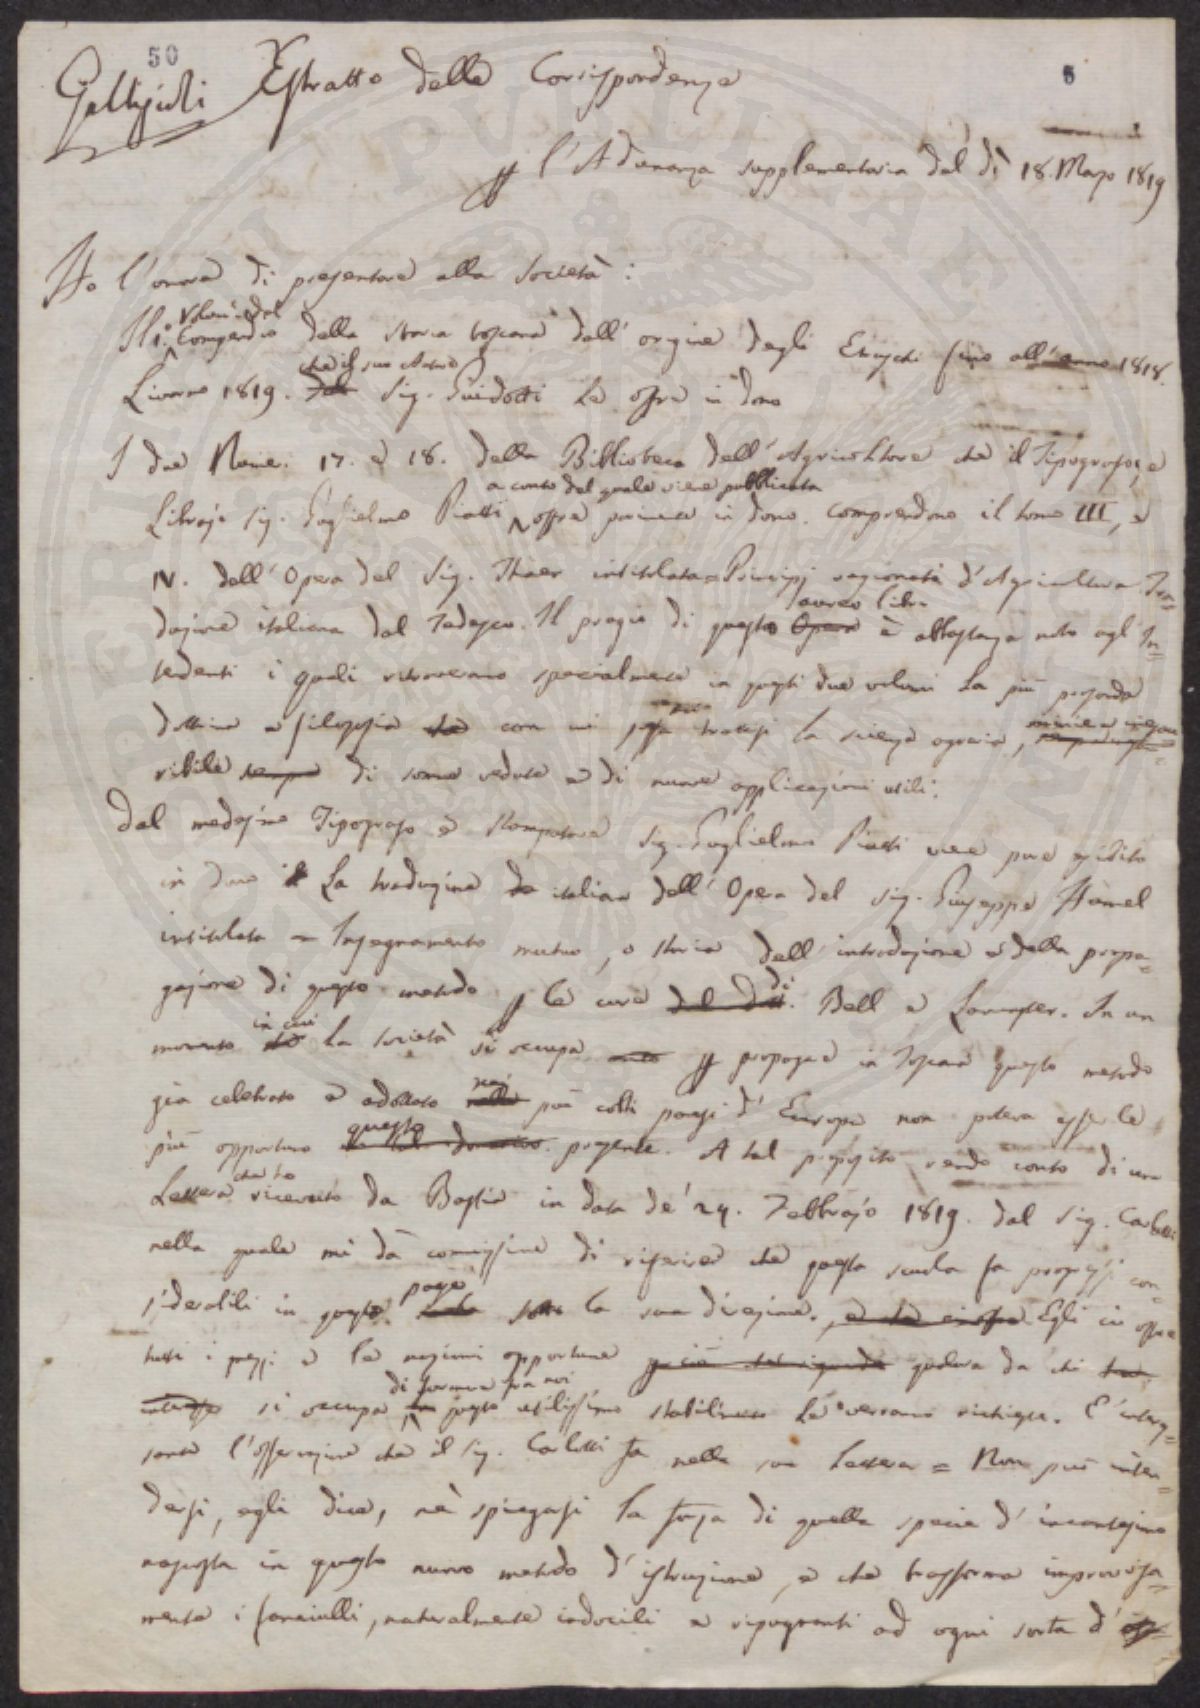 50
5
Gallizioli Estratto della Corrispondenza
l'Adunanza supplementaria del dì 18. Marzo 1819
Ho l'onore di presentare alla Società:
Volume del
Il 1.º Compendio della storia toscana dall'origine degli Etruschi fino all'anno 1818.
che il suo Autore
Livorno 1819. Sig. Guidotti le offre in dono
I due 17. e 18. della Biblioteca dell'Agricoltore che il Tipografo, e
a conto del quale viene pubblicata
Librajo Sig. Guglielmo Piatti offre in dono. comprendono il tomo III, e
IV. dell'Opera del Sig. Thaer intitolata = Principj ragionati d'Agricoltura Tra=
aureo libro
duzione italiana dal Tedesco. Il pregio di questo Opera è abbastanza noto agl'In=
tendenti i quali ritroveranno specialmente in questi due volumi la più profonda
dottrina e filosofia con cui trattasi la scienza agraria, miniera
ribile sempre di nuove vedute e di nuove applicazioni utili.
Dal medesimo Tipografo e Sig. Guglielmo Piatti viene pure
in dono la traduzione italiana dell'Opera del Sig. Giuseppe Hamel
intitolata = Insegnamento mutuo, o storia dell'introduzione e della propa=
di
gazione di questo metodo le cure Bell e Lancaster. In un
in cui
momento la Società si occupa propagare in Toscana questo metodo
nei
già celebrato e adottato nelle più colti paesi d'Europa non poteva esserle
questo
più opportuno presente. A tal proposito rendo conto di una
che ho
Lettera ricevuto da Bastia in data de' 24. Febbrajo 1819. dal Sig. Carlotti
nella quale mi dà commissione di riferire che questa scuola fa progressi con=
paese
siderabili in questo sotto la sua direzione. Egli ci offre
tutti i mezzi e le nozioni opportune qualora da chi
di formare fra noi
si occupa questo utilissimo stabilimento le verranno richieste. È interes=
sante l'osservazione che il Sig. Carlotti fa nella sua lettera = Non può inten=
dersi, egli dice, nè spiegarsi la forza di quella specie d'incantesimo
nascosta in questo nuovo metodo d'istruzione, e che trasforma improvvisa=
mente i fanciulli, naturalmente indocili e ripugnanti ad ogni sorta d'